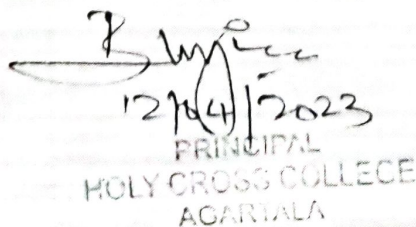 12/04/2023
PRINCIPAL
HOLY CROSS COLLECE
AGARTALA